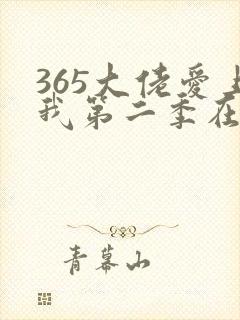 365大佬爱上
我第二季在
青幕山